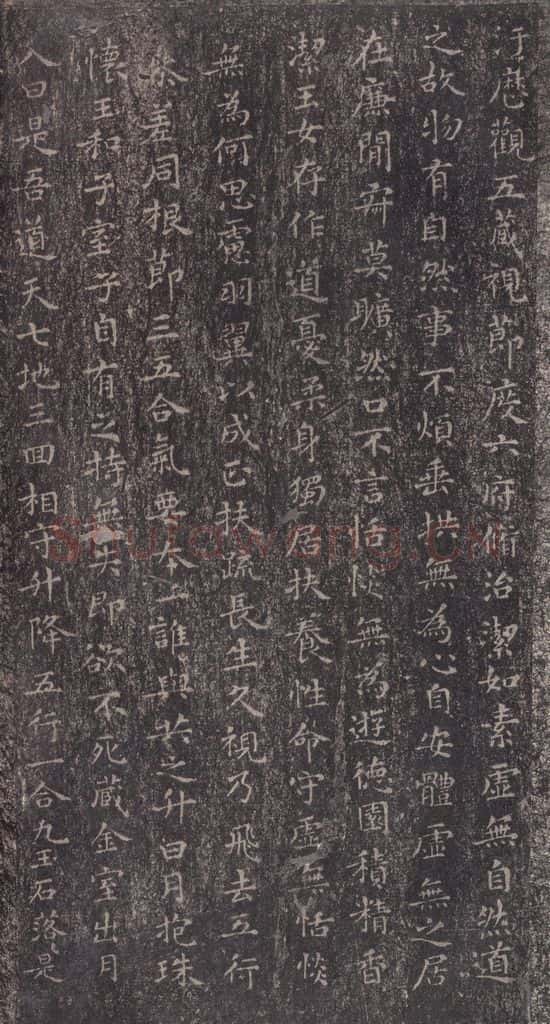 汙歷觀五藏視節度六府脩治潔如素虛無自然道
之故物有自然事不煩垂拱無為心自安體虛無之居
在廉間寂莫曠然口不言恬惔無為遊德園積精香
潔玉女存作道憂柔身獨居扶養性命守虛無恬惔
無為何思慮羽翼以成正扶疏長生久視乃飛去五行
參差同根節三五合氣要本一誰與共之升日月抱珠
懷玉和子室子自有之持無失即欲不死藏金室出月
入日是吾道天七地三回相守升降五行一合九玉石落〻是
Shufawang.CN